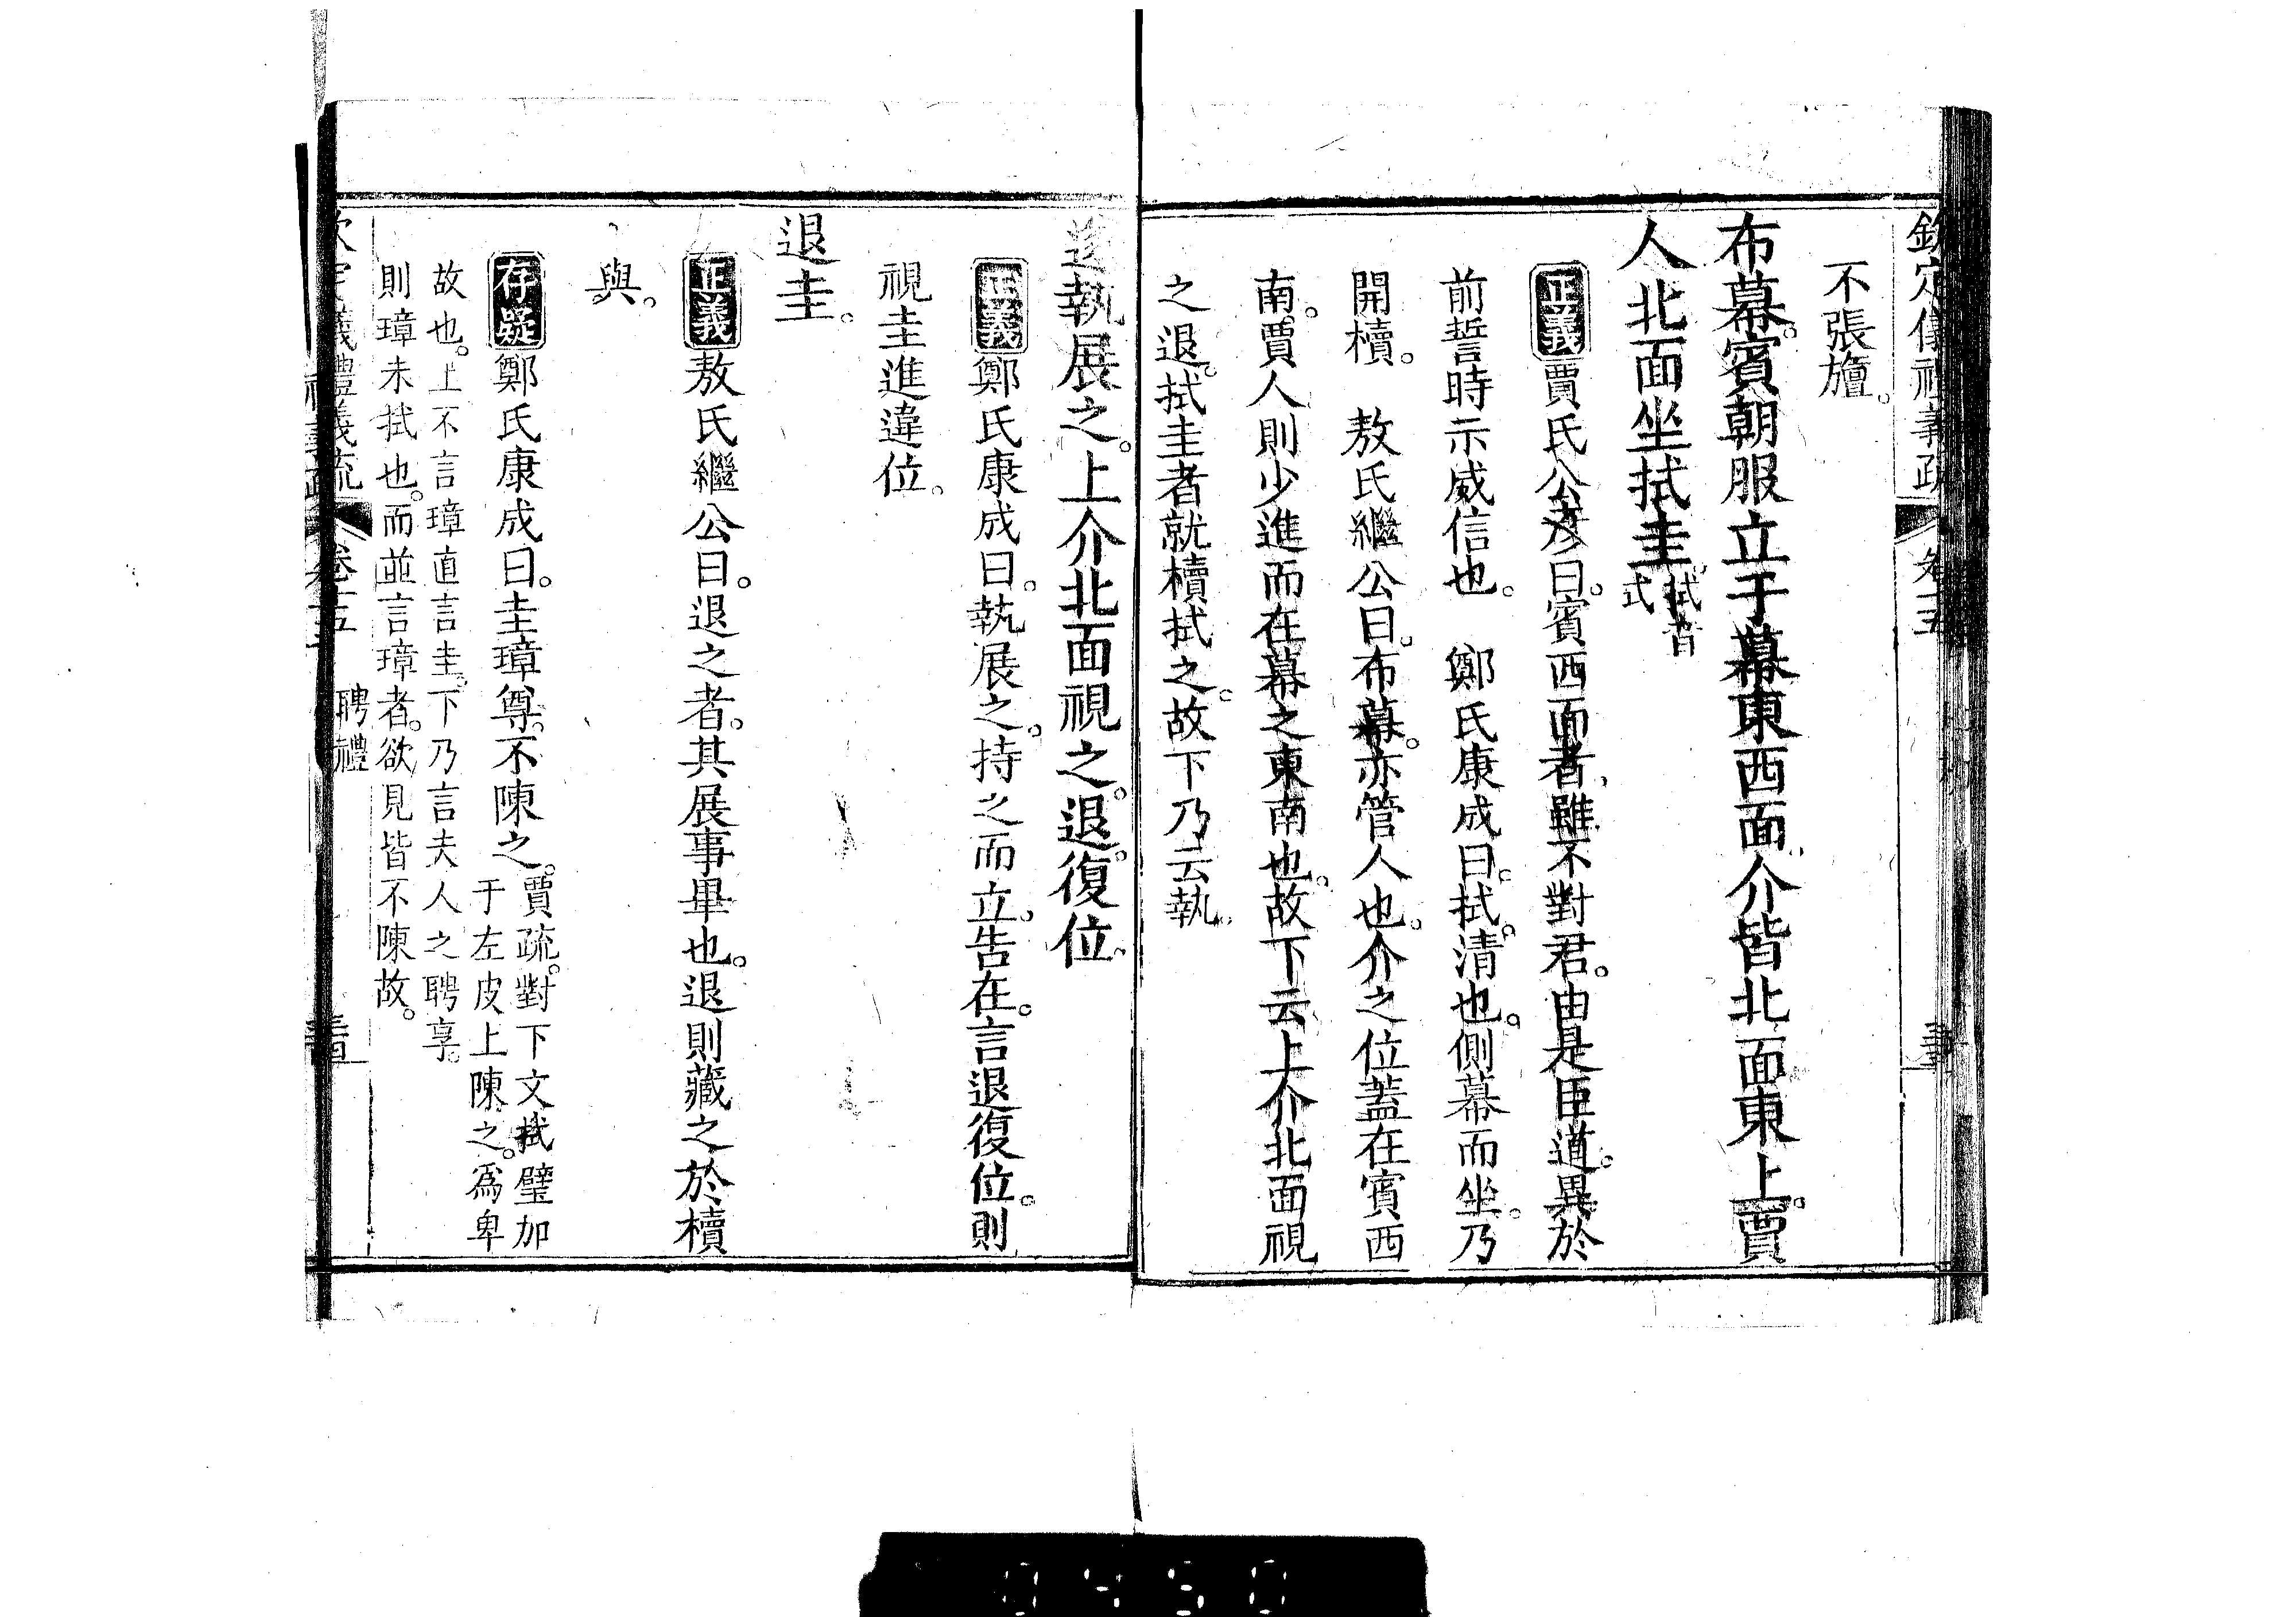 欽定儀禮義疏 卷十五
不張旜。
布幕。賓朝服立于幕東西面介皆北面東上。賈
人北面坐拭圭。拭音式
正義賈氏公彥曰。賓西面者、雖不對君。由是臣道。異於
前誓時示威信也。 鄭氏康成曰。拭。清也。側幕而坐。乃
開櫝。 敖氏繼公曰。布幕。亦管人也。介之位蓋在賓西
南。賈人則少進而在幕之東南也。故下云上介北面視
之退。拭圭者就櫝拭之。故下乃云執。
遂執展之。上介北面視之。退。復位。
正義鄭氏康成曰。執展之。持之而立。告在。言退復位。則
視圭進違位。
退圭。
正義敖氏繼公曰。退之者。其展事畢也。退則藏之於櫝
與。
存疑鄭氏康成曰。圭璋尊。不陳之。賈疏。對下文拭璧加
于左皮上陳之。爲卑
故也。上不言璋直言圭。下乃言夫人之聘享。
則璋未拭也。而並言璋者。欲見皆不陳故。
欽定儀禮義疏 卷十五 聘禮
0450